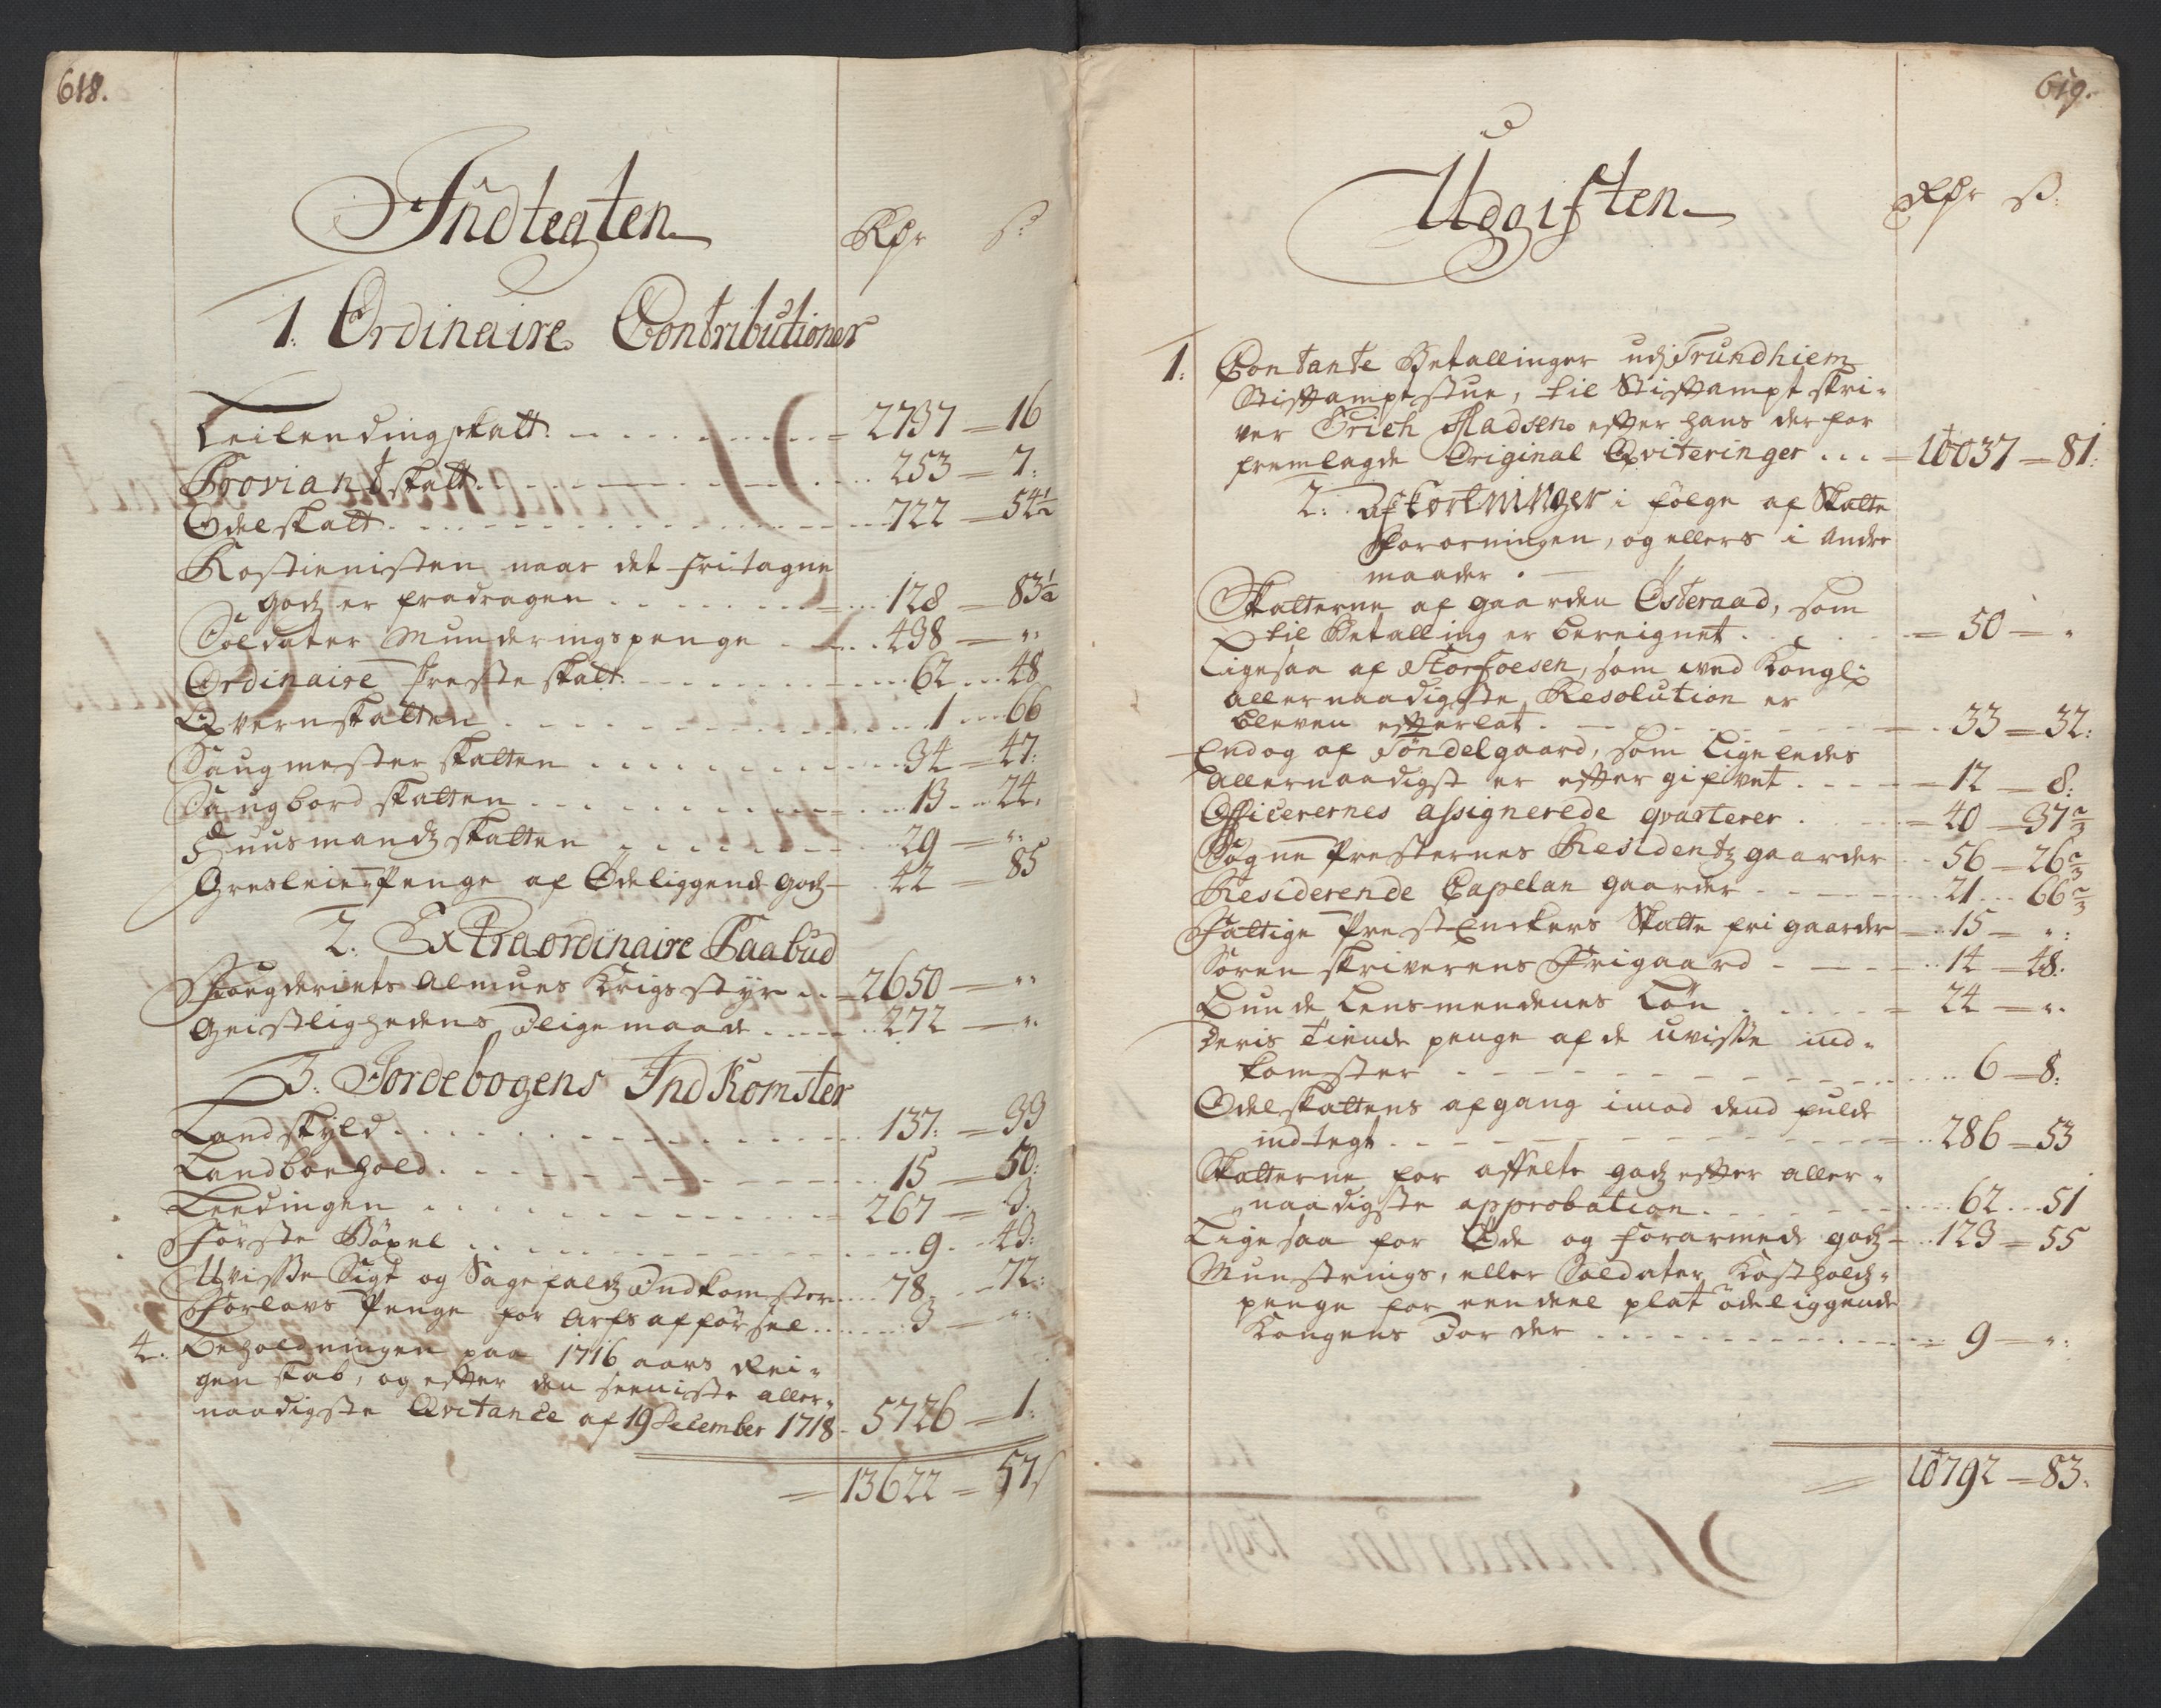 618.
Indtegten
Rdr s:
1. Ordinaire Contributioner
Leilendingskatt. 2737 — 16
Proviantskatt. 253 — 7:
Odelskatt. 722 — 54½
Rostienisten naar det fritagne
godz er fradragen 128 — 83½
Soldater Munderingspenge 438 — "
Ordinaire Presteskatt. 62 48
Qvernskatten 1 66
Saugmesterskatten 34 — 47:
Saugbordskatten 13 24.
Huusmandzskatten 29 — "
Gresleie Penge af Ødeliggende godz 42 — 85
2. Extraordinaire Paabud
Fougderiets Almues Krigsstyr 2650 — "
Geistlighedens Dligemaade 272 — "
3. Jordebogens Indkomster
Landskyld 137: — 93
Landboehold 15 — 50:
Leedingen 267 — 3.
Første Bøxel 9 43:
Uvisse Sigt og Sagefaldz Indkomster 78 72:
Forlovs Penge for Arfs afførsel 3 — "
4. Beholdningen paa 1716 aars Rei-
genskab, og efter den seeniste aller-
naadigste Qvitance af 19 December 1718 5726 — 1:
13622 — 57s
619.
Udgiften
Rdr s:
1. Contante Betallinger udj Trundhiem
Stiftamptstue, til Stiftamptskri-
ver Erich Madsen efter hans der for
fremlagde Original Qviteringer 10037 — 81:
2. Afkortninger i følge af Skatte
Fororningen, og ellers i Andre
maader.
Skatterne af gaarden Østeraad, som
til Betalling er bereignet 50 — "
Ligesaa af Storfoesen, som ved Kongl:
allernaadigste Resolution er
bleven efterlat 33 — 32:
Endog af Tøndelgaard, som ligeledes
allernaadigst er eftergifvet 12 — 8:
Officerernes assignerede qvarterer 40 — 37⅔
Sogne Presternes Residentz gaarder 56 — 26⅔
Residerende Capelan gaarder 21 66⅔
Fattige PrestEnckers Skatte fri gaarder 15 — ":
Sorenskriverens Frigaard 14 — 48.
Bunde Lensmendenes Løn 24 — ".
Deris tiende penge af de uvisse ind-
komster 6 — 8:
Odelskattens afgang imod dend fulde
indtegt 286 — 53
Skatterne for affelte godz efter aller-
naadigste approbation 62 51
Ligesaa for Øde og forarmede godz 123 — 55
Munstrings, eller Soldater Kostholdz-
penge for een deel plat ødeliggende
Kongens Jorder 9 — ":
10792 — 83.